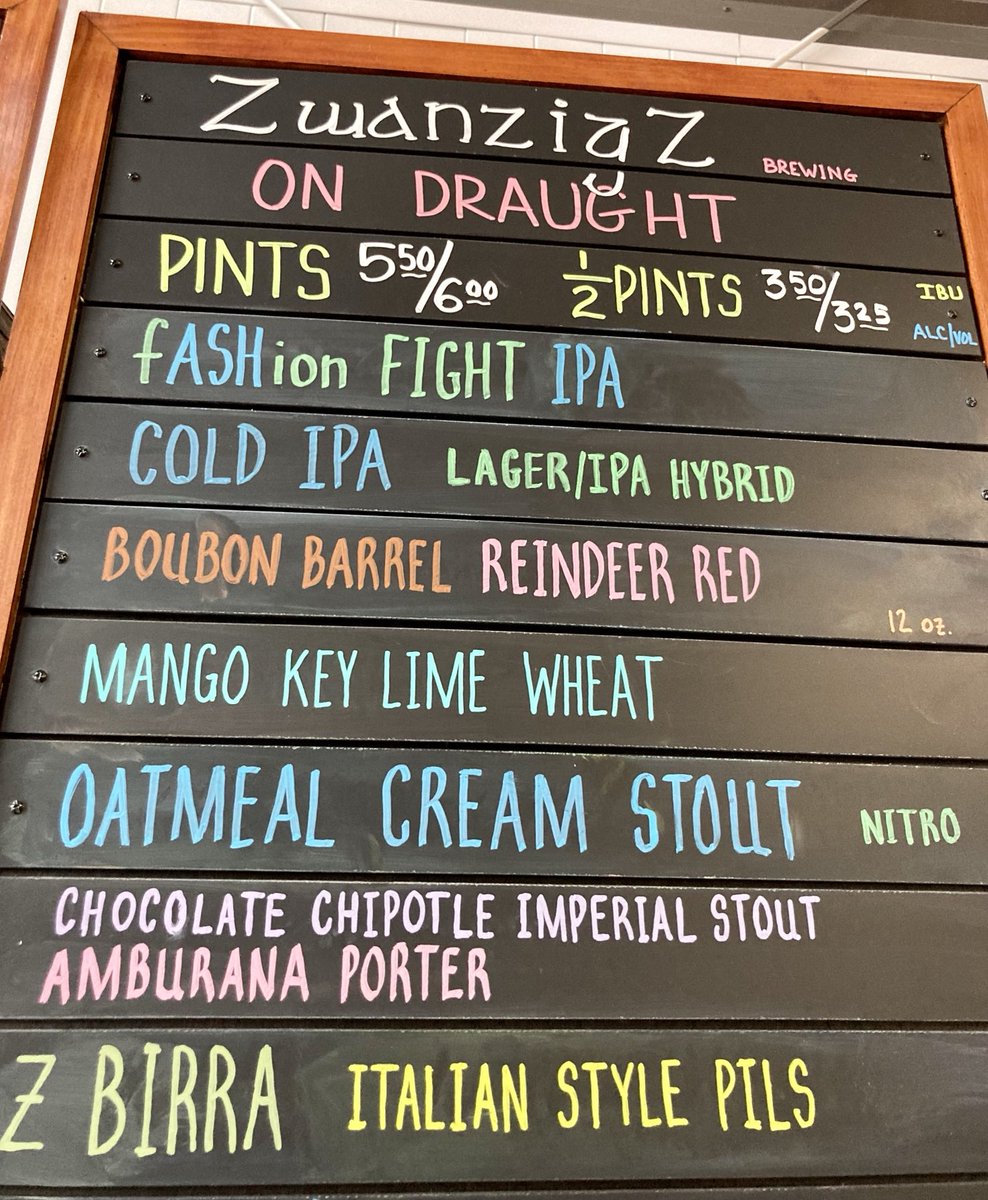 ZwanzigZ BREWING
ON DRAUGHT
PINTS 550/600 1/2 PINTS 350/325 IBU
ALC/VOL
fASHion FIGHT IPA
COLD IPA LAGER/IPA HYBRID
BOUBON BARREL REINDEER RED
12 oz.
MANGO KEY LIME WHEAT
OATMEAL CREAM STOUT NITRO
CHOCOLATE CHIPOTLE IMPERIAL STOUT
AMBURANA PORTER
Z BIRRA ITALIAN STYLE PILS